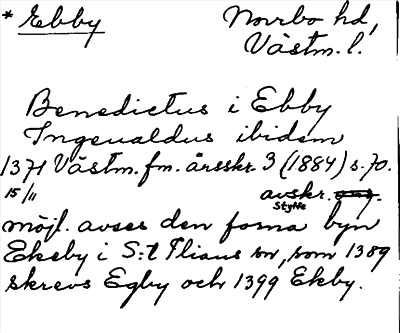 * Ebby Norrbo hd,
Västm. l.
Benedictus i Ebby
Ingeualdus ibidem
1371 Västm. fm. årsskr. 3 (1884) s. 70.
15/11 avskr.
Styffe
möjl. avses den forna byn
Ekeby i S:t Ilians sn, som 1389
skrevs Egby och 1399 Ekby.